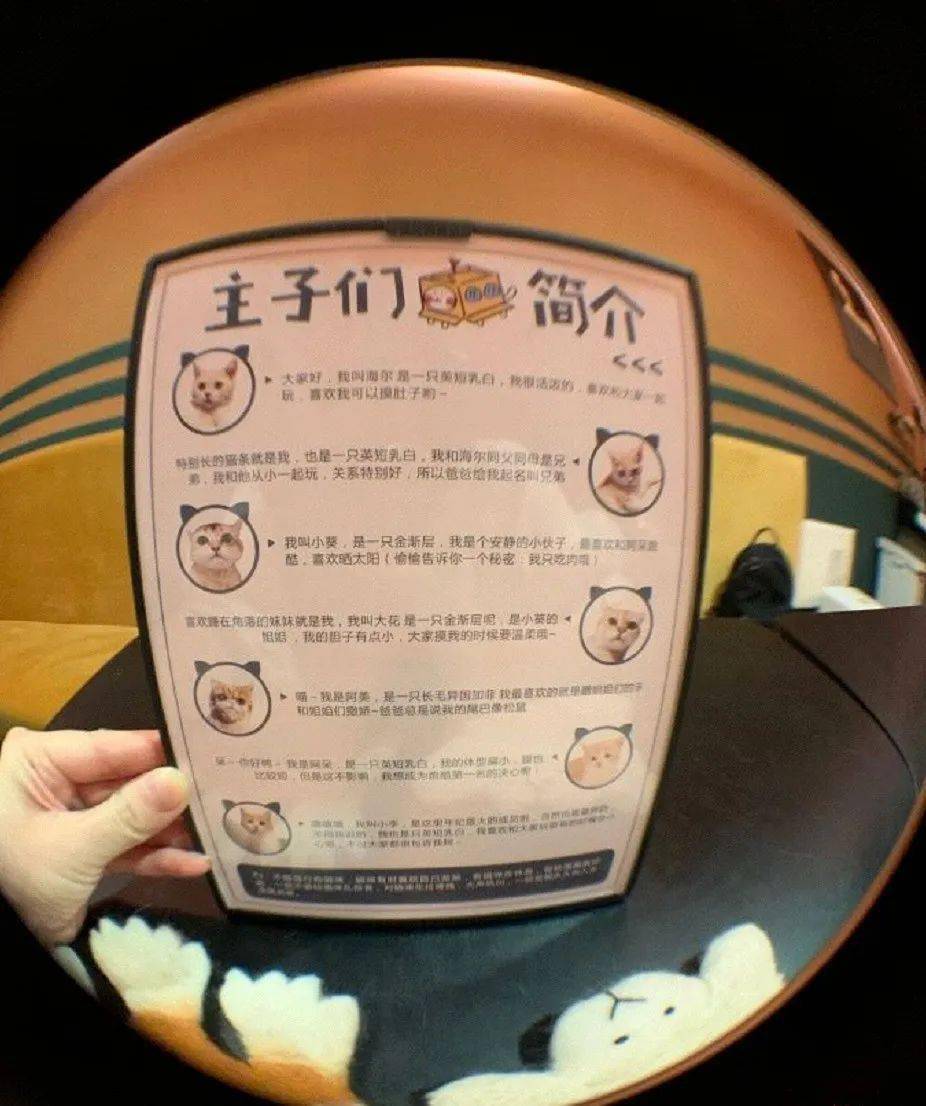 主子们 简介
<<<
大家好，我叫海尔 是一只英短乳白，我很活泼的，喜欢和大家一起
玩，喜欢我可以摸肚子哟~
特别长的猫条就是我，也是一只英短乳白，我和海尔同父同母是兄
弟，我和他从小一起玩，关系特别好，所以爸爸给我起名叫兄弟
我叫小葵，是一只金渐层，我是个安静的小伙子，最喜欢和阿呆耍
酷，喜欢晒太阳（偷偷告诉你一个秘密：我只吃肉哦）
喜欢睡在角落的妹妹就是我，我叫大花 是一只金渐层呢，是小葵的
姐姐，我的胆子有点小，大家摸我的时候要温柔哦~
喵~我是阿美，是一只长毛异国加菲 我最喜欢的就是
和姐姐们撒娇~爸爸总是说我的尾巴像松鼠
你好鸭~ 我是阿呆，是一只英短乳白，我的体型偏小，腿也
比较短，但是这不影响，我想成为 第一名的决心呢！
我叫小李，是这里年纪最大的成员啦
我也是只英短乳白，我喜欢和大家玩